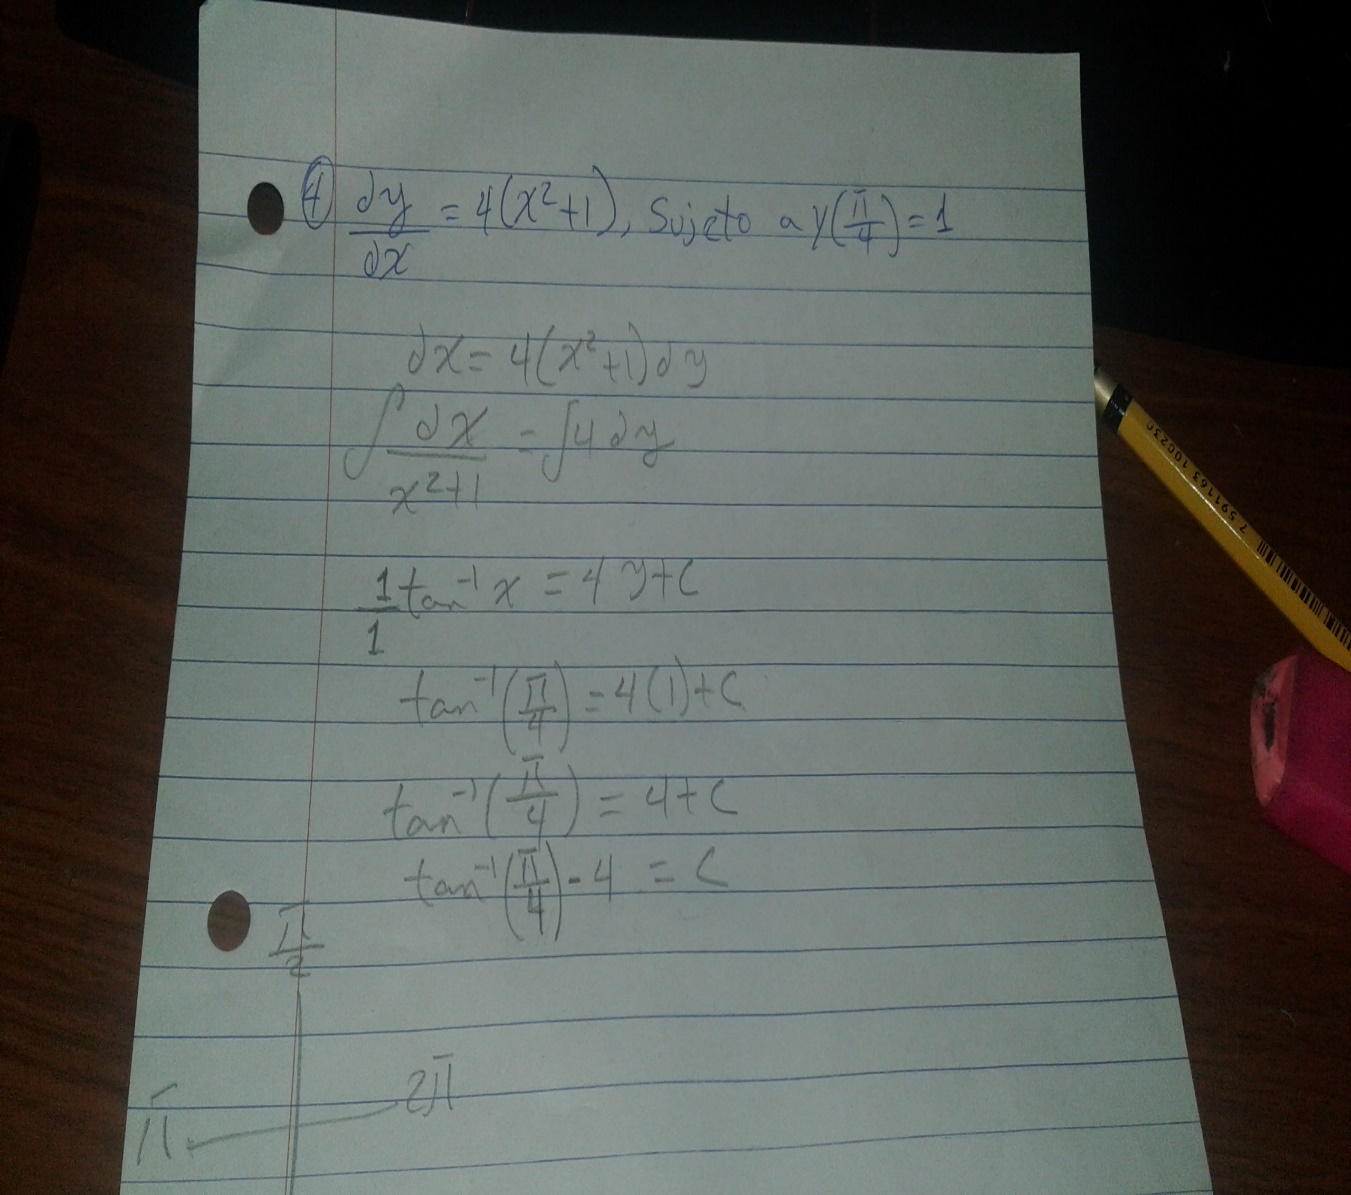 ④ dy/dx = 4(x²+1), Sujeto a y(π/4) = 1
dx = 4(x²+1)dy
∫ dx/x²+1 = ∫4dy
1/1 tan⁻¹ x = 4y+c
tan⁻¹(π/4) = 4(1)+c
tan⁻¹(π/4) = 4+c
tan⁻¹(π/4) - 4 = c
π/2
2π
π
7 591163 100230